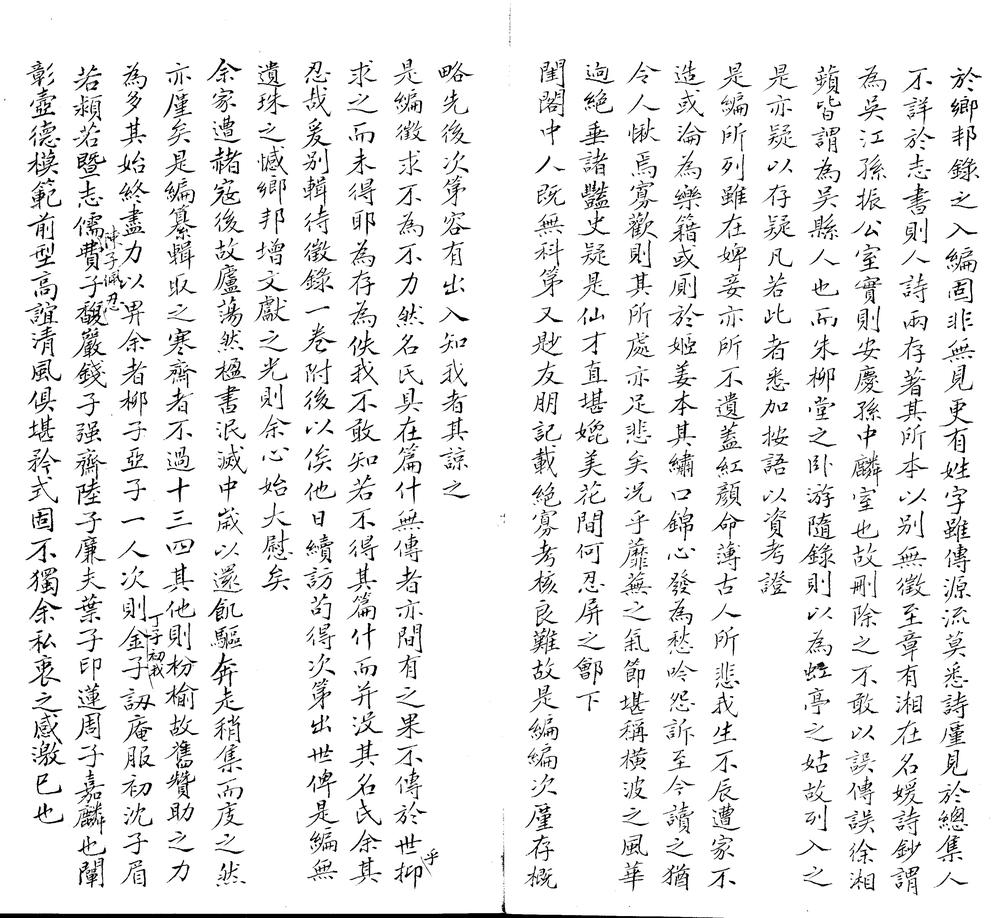 於鄉邦錄之入編固非無見更有姓字雖傳源流莫悉詩廑見於總集人
不詳於志書則人詩兩存著其所本以别無徵至章有湘在名媛詩鈔謂
為吳江孫振公室實則安慶孫中麟室也故刪除之不敢以誤傳誤徐湘
蘋皆謂為吳縣人也而朱柳堂之卧游隨錄則以為蛵亭之姑故列入之
是亦疑以存疑凡若此者悉加按語以資考證
是編所列雖在婢妾亦所不遺蓋紅顏命薄古人所悲我生不辰遭家不
造或淪為樂籍或厠於姬姜本其繡口錦心發為愁吟怨訴至今讀之猶
令人愀焉寡歡則其所處亦足悲矣況乎蘼蕪之氣節堪稱橫波之風華
逈絶垂諸豔史疑是仙才直堪媲美花間何忍屏之鄶下
閨閣中人既無科第又尟友朋記載絕寡考核良難故是編編次廑存概
略先後次第容有出入知我者其諒之
是編徵求不為不力然名氏具在篇什無傳者亦間有之果不傳於世抑
乎
求之而未得耶為存為佚我不敢知若不得其篇什而并沒其名氏余其
忍哉爰别輯待徵錄一卷附後以俟他日續訪苟得次第出世俾是編無
遺珠之憾鄉邦增文獻之光則余心始大慰矣
余家遭赭寇後故廬蕩然楹書泯滅中歲以還飢驅奔走稍集而庋之然
亦廑矣是編纂輯取之寒齋者不過十三四其他則枌榆故舊贊助之力
為多其始終盡力以畀余者柳子亞子一人次則金子訒庵服初沈子眉
丁子初我
若潁若暨志儒費子馥巖錢子强齋陸子廉夫葉子印蓮周子嘉麟也闡
陳子佩忍
彰壼德模範前型高誼清風俱堪矜式固不獨余私衷之感激已也